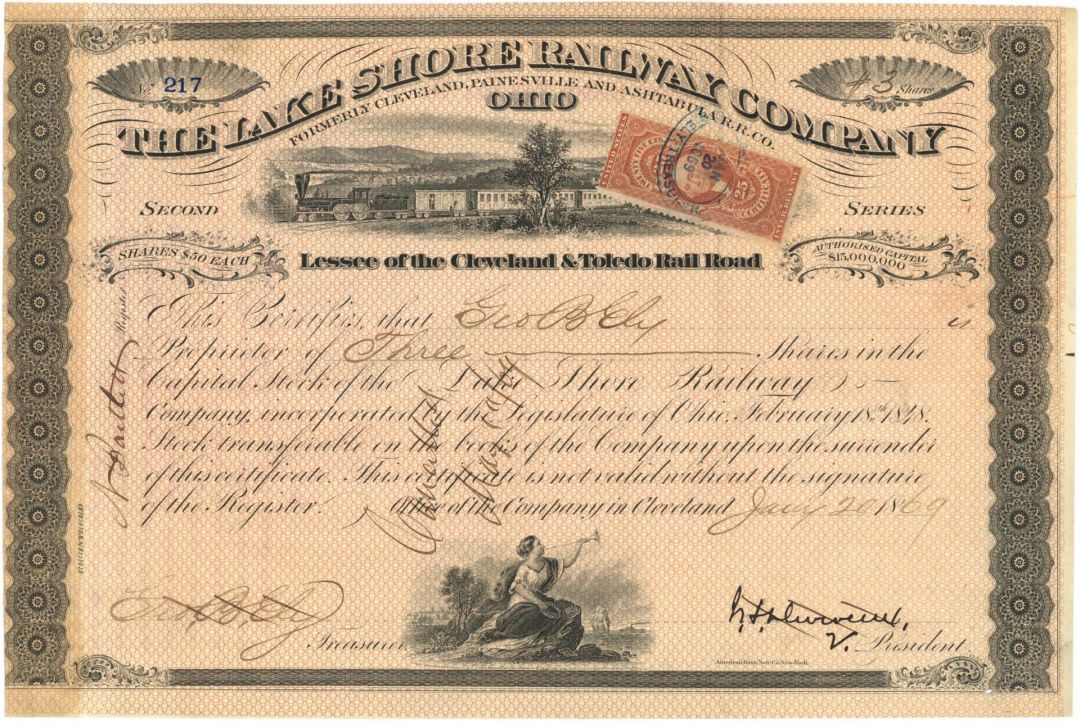 No. 217
# 3 Shares
THE LAKE SHORE RAILWAY COMPANY
FORMERLY CLEVELAND, PAINESVILLE AND ASHTABULA R.R. CO.
OHIO
UNITED STATES
25
20
1869
TREAS
SECOND SERIES
SHARES $50 EACH
AUTHORISED CAPITAL
$15,000,000
Lessee of the Cleveland & Toledo Rail Road
This Certifies, that Geo B Ely is
Proprietor of Three Shares in the
Capital Stock of the Lake Shore Railway
Company, incorporated by the Legislature of Ohio, February 18th 1848.
Stock transferable on the books of the Company upon the surrender
of this certificate. This certificate is not valid without the signature
of the Register. Office of the Company in Cleveland Jany 20 1869
Register
REGISTERED
Cancelled
Geo. B. Ely
Treasurer
V. President.
American Bank Note Co. New-York.